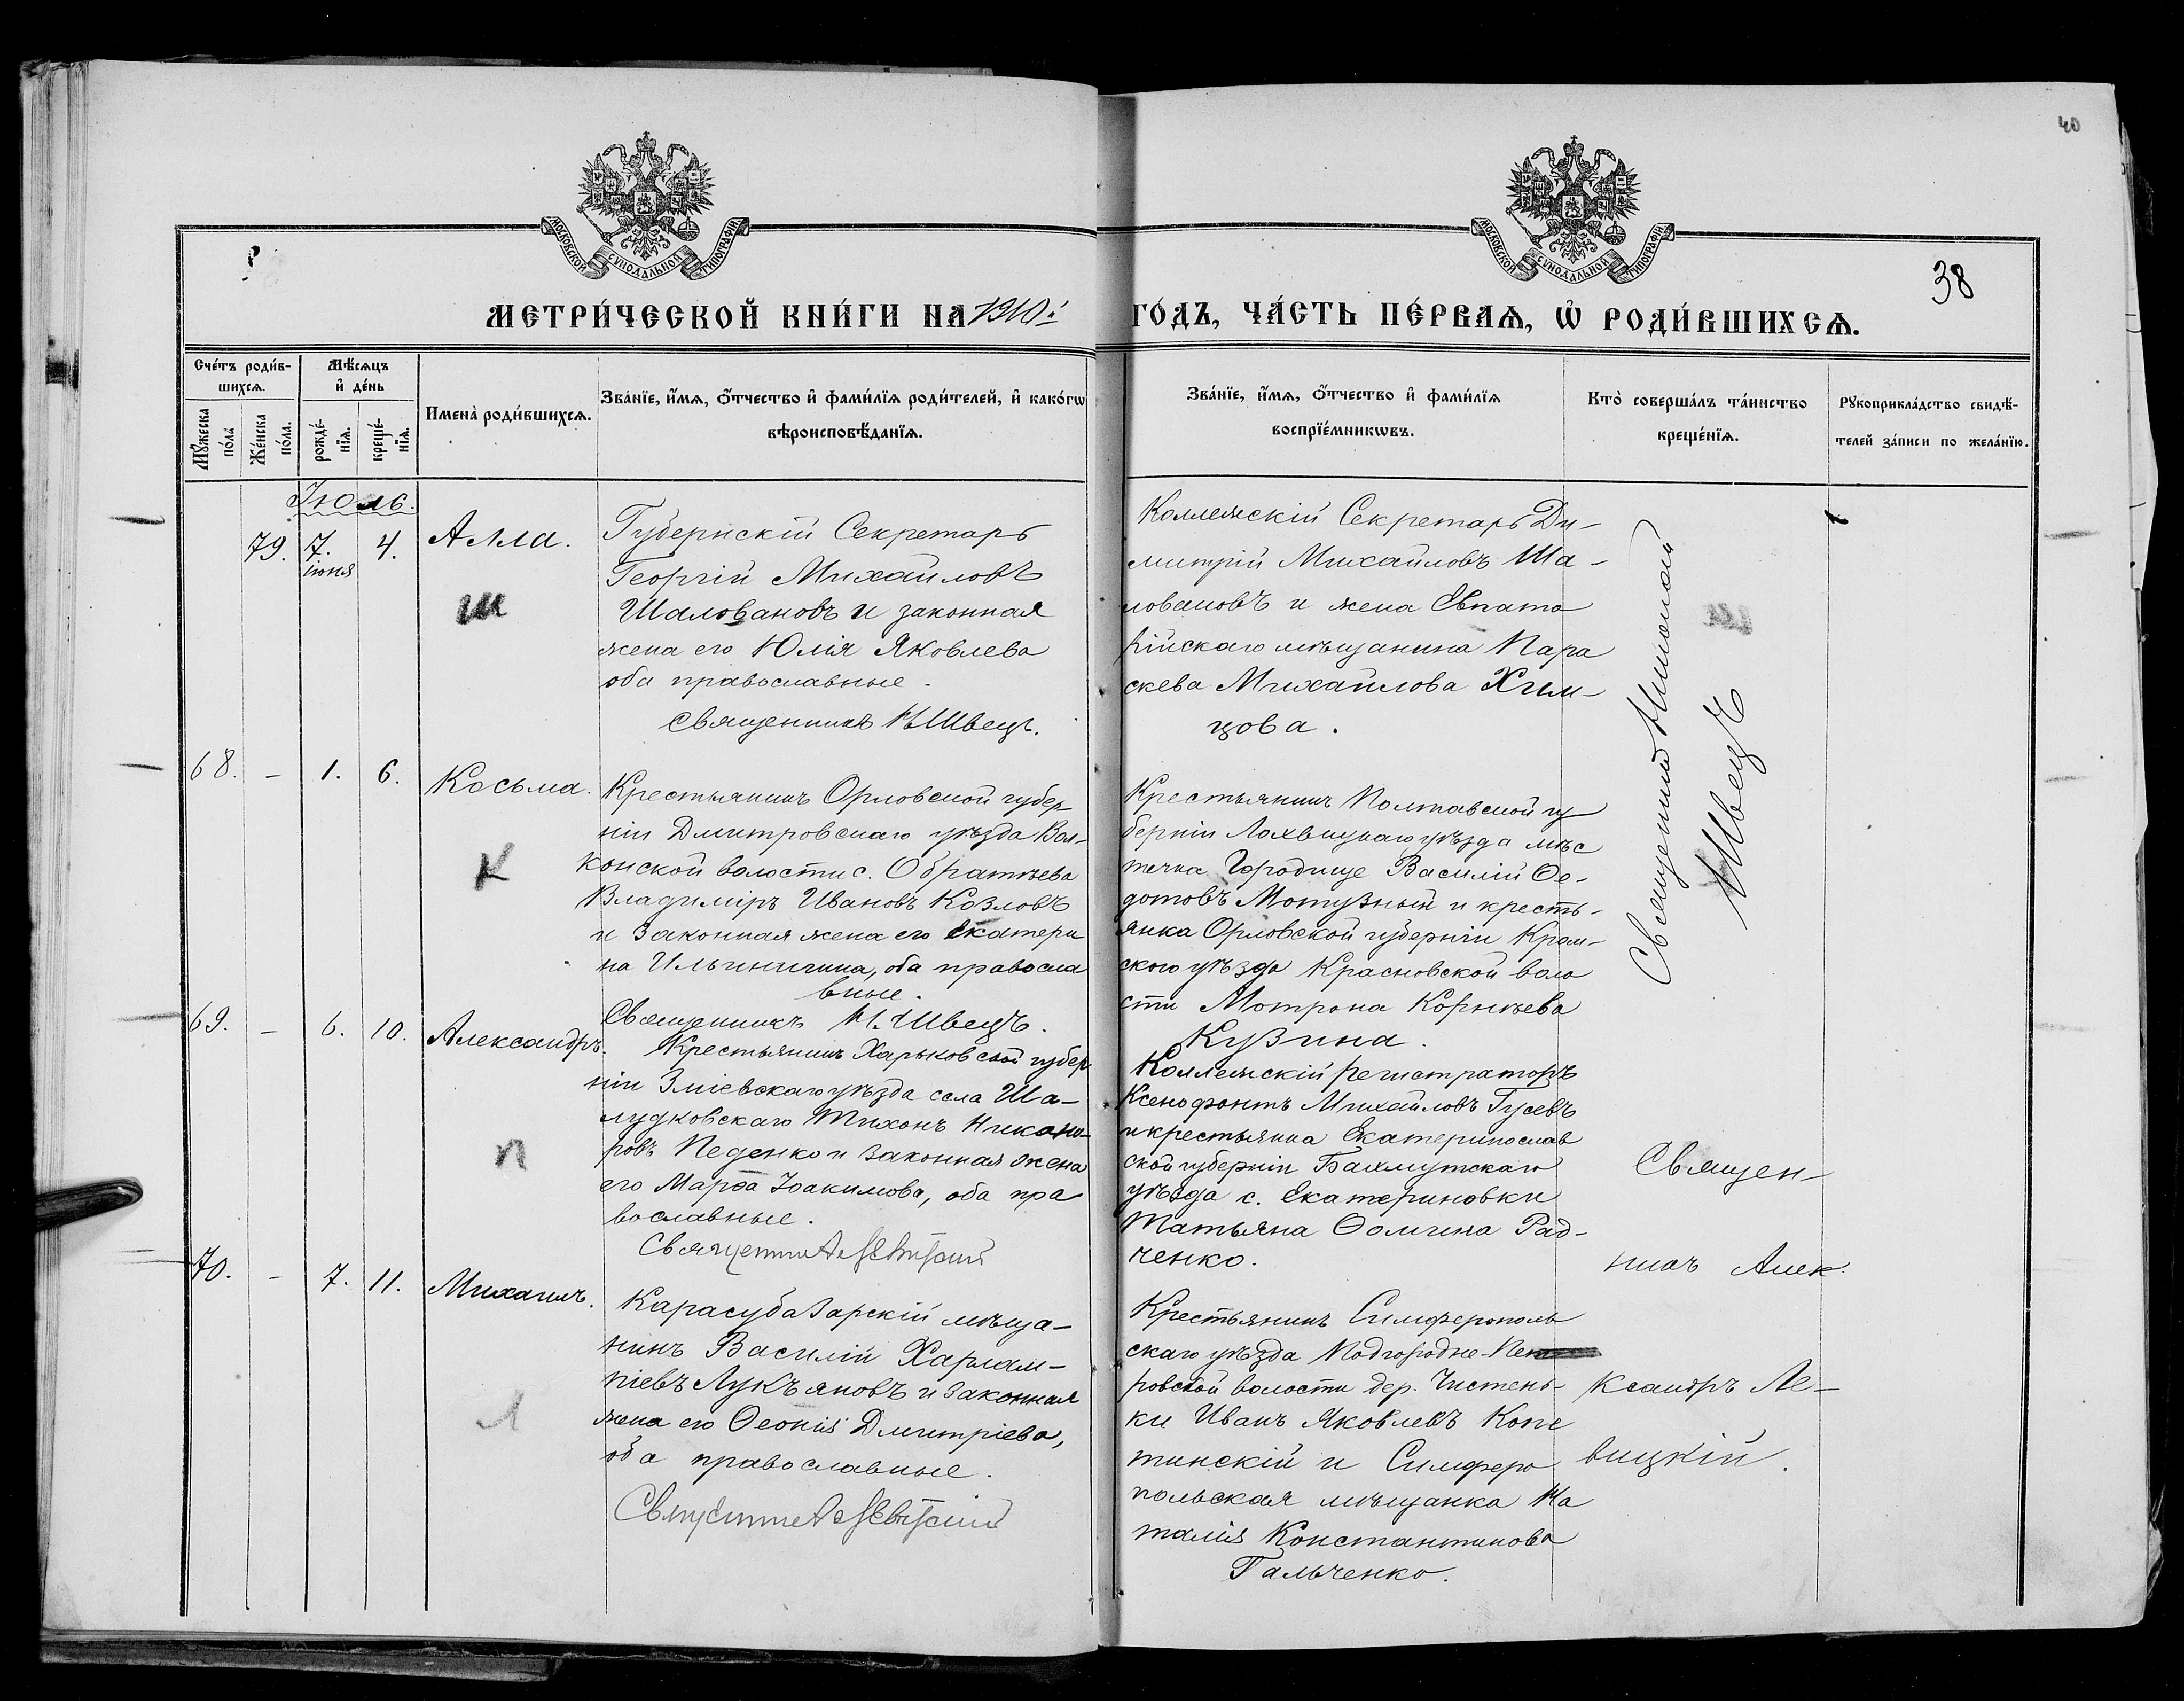 40
38
МОСКОВСКОЙ СѴНОДАЛЬНОЙ ТИПОГРАФІИ
МОСКОВСКОЙ СѴНОДАЛЬНОЙ ТИПОГРАФІИ
МЕТРИ́ЧЕСКОЙ КНИ́ГИ НА 1910 й ГО́ДЪ, ЧА́СТЬ ПЕ́РВАѦ, Ѡ҆ РОДИ́ВШИХСѦ.
Сче́тъ роди́в-
шихсѧ.
Мꙋ́жеска
по́ла
Же́нска
по́ла.
Мѣ́сѧцъ
и҆ де́нь
рожде́-
нїѧ.
креще́-
нїѧ.
Имена̀ роди́вшихсѧ.
Зва́нїе, и҆́мѧ, ѻ҆́тчество и҆ фами́лїѧ роди́телей, и҆ како́гѡ
вѣроисповѣ́данїѧ.
Зва́нїе, и҆́мѧ, ѻ҆́тчество и҆ фами́лїѧ
воспрїе́мникѡвъ.
Кто̀ соверша́лъ та́инство
креще́нїѧ.
Рꙋкоприкла́дство свидѣ́-
телей за́писи по жела́нїю.
Іюль.
79. 7. 4.
іюня
Алла.
ш
Губернскій Секретарь
Георгій Михайловъ
Шаловановъ и законная
жена его Юлія Яковлева
оба православные.
Священникъ Н. Швецъ.
Коллежскій Секретарь Ди-
митрій Михайловъ Ша-
ловановъ и жена Евпато
рійскаго мѣщанина Пара
скева Михайлова Хим-
цова.
Священникъ Николай
Швецъ
68. – 1. 6.
Косьма.
К
Крестьянинъ Орловской губер
ніи Дмитровскаго уѣзда Вол-
конской волости с. Обратѣева
Владиміръ Ивановъ Козловъ
и законная жена его Екатери
на Ильинична, оба правосла
вные.
Священникъ Н. Швецъ.
Крестьянинъ Полтавской гу
берніи Лохвицкаго уѣзда мѣс
течка Городище Василій Ѳе-
дотовъ Мотузный и кресть-
янка Орловской губерніи Кром-
ского уѣзда Красновской воло
сти Мотрона Корнѣева
Кузина.
69. – 6. 10.
Александръ.
П
Крестьянинъ Харьковской губер
ніи Зміевскаго уѣзда села Ша-
лудковскаго Тихонъ Никано-
ровъ Педенко и законная жена
его Марѳа Іоакимова, оба пра
вославные.
Священникъ А. Левицкій
Коллежскій регистраторъ
Ксенофонтъ Михайловъ Гусевъ
и крестьянка Екатеринослав
ской губерніи Бахмутскаго
уѣзда с. Екатериновки
Татьяна Ѳомина Рад-
ченко.
Священ-
никъ Алек
70. – 7. 11.
Михаилъ.
Л
Карасубазарскій мѣща-
нинъ Василій Харлам-
піевъ Лукъяновъ и законная
жена его Ѳеонія Дмитріева,
оба православные.
Священникъ А. Левицкій
Крестьянинъ Симферополь
скаго уѣзда Подгородне-Пет
ровской волости дер. Чистень-
ки Иванъ Яковлевъ Копе
тинскій и Симферо
польская мѣщанка На
талія Константинова
Гальченко.
ксандръ Ле-
вицкій.